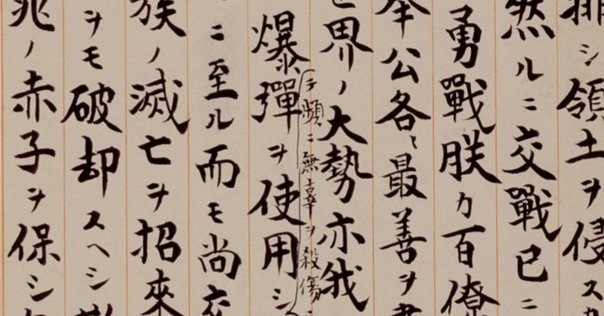 排シ領土ヲ侵ス
然ルニ交戰已ニ
勇戰朕カ百僚
奉公各〻最善ヲ
世界ノ大勢亦我
テ頻ニ無辜ヲ殺傷
爆彈ヲ使用シ
ニ至ル而モ尚交
族ノ滅亡ヲ招來
ヲモ破却スヘシ
兆ノ赤子ヲ保シ